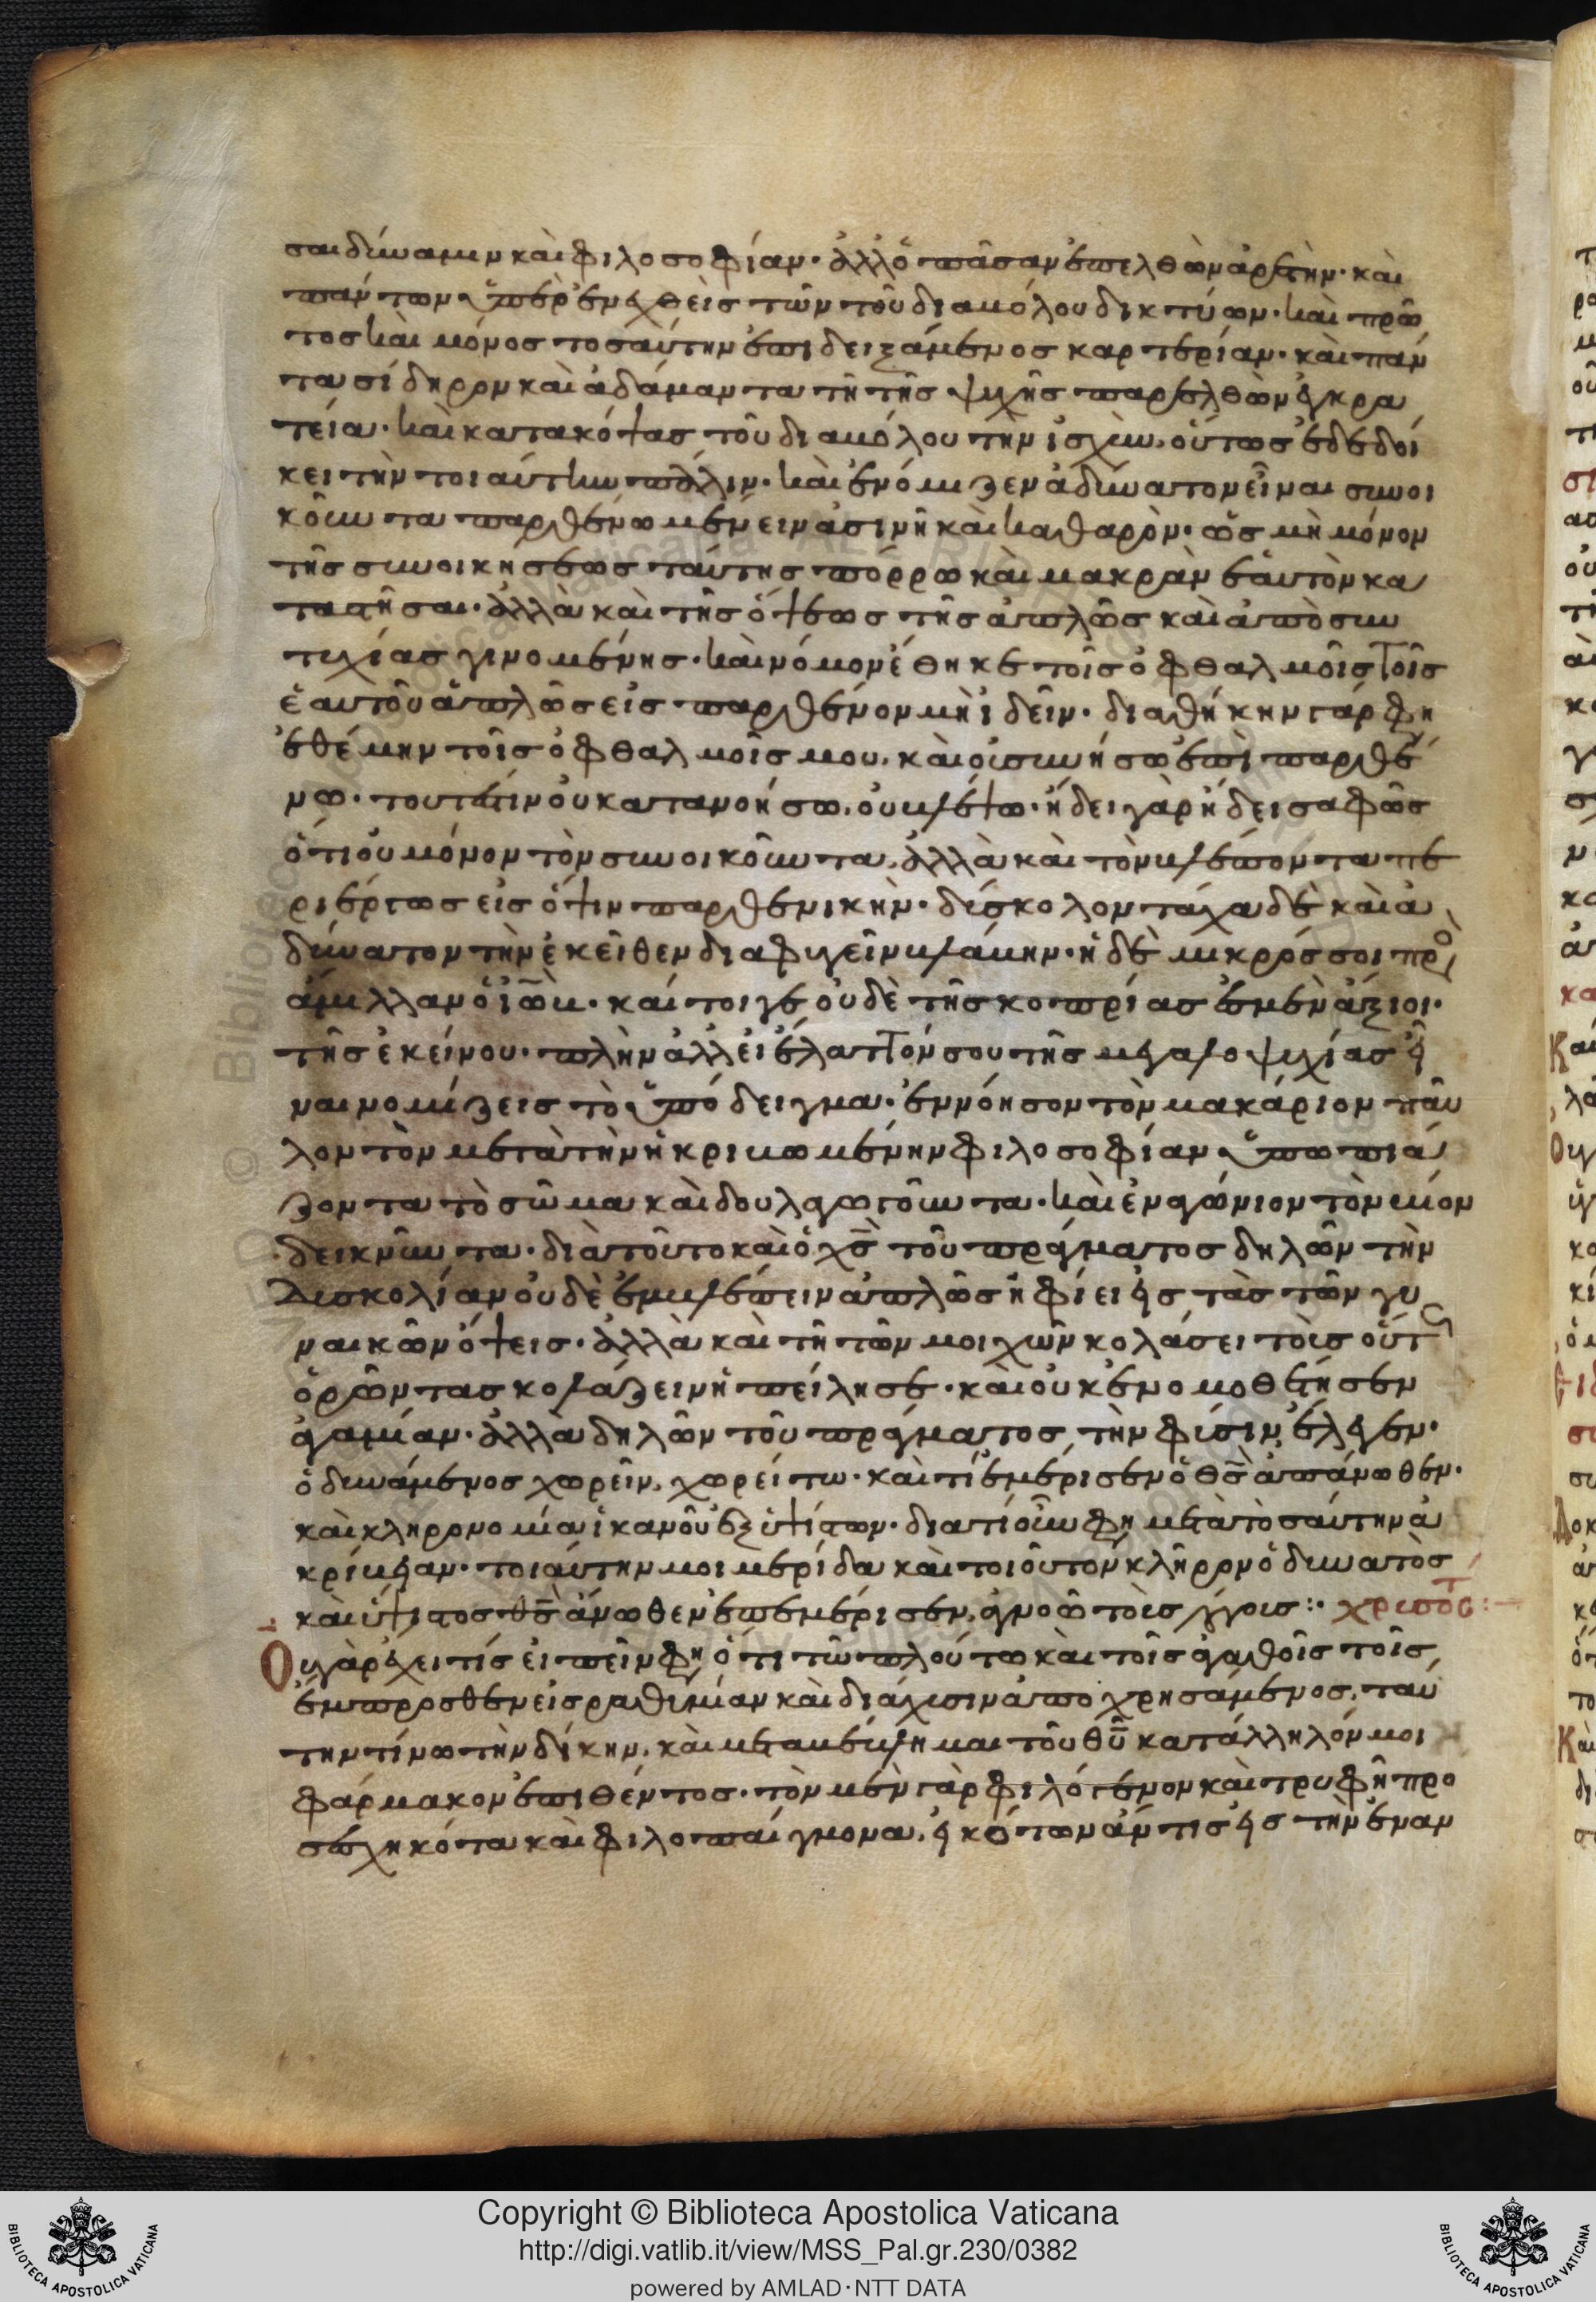 σαι δύναμιν καὶ φιλοσοφίαν· ἀλλ' ὁ πᾶσαν ἐπελθὼν ἀρετήν· καὶ
πάντων ὑπερενεχθεὶς τῶν τοῦ διαβόλου δικτύων· καὶ πρῶ
τος καὶ μόνος τοσαύτην ἐπιδειξάμενος καρτερίαν· καὶ πάν
τα σίδηρον καὶ ἀδάμαντα τῆ τῆς ψυχῆς παρελθὼν ἐγκρα
τεία· καὶ κατακόψας τοῦ διαβόλου τὴν ἰσχὺν, οὕτως ἐδεδοί
κει τὴν τοιαύτην πάλιν· καὶ ἐνόμιζεν ἀδύνατον εἶναι συνοι
κοῦντα παρθένω μένειν ἀσινῆ καὶ καθαρὸν· ὡς μὴ μόνον
τῆς συνοικήσεως ταύτης πόρρω καὶ μακρὰν ἑαυτὸν κα
ταστῆσαι· ἀλλὰ καὶ τῆς ὄψεως τῆς ἁπλῶς καὶ ἀπὸ συν
τυχίας γινομένης· καὶ νόμον ἔθηκε τοῖς ὀφθαλμοῖς τοῖς
ἑαυτοῦ ἁπλῶς εἰς παρθένον μὴ ἰδεῖν· διαθήκην γάρ φη
ἐθέμην τοῖς ὀφθαλμοῖς μου, καὶ οὐ συνήσω ἐπὶ παρθέ
νω· τουτέστιν οὐ κατανοήσω, οὐ βλέψω· ἤδει γὰρ ἤδει σαφῶς
ὅτι οὐ μόνον τὸν συνοικοῦντα, ἀλλὰ καὶ τὸν βλέποντα πε
ριέργως εἰς ὄψιν παρθενικὴν· δύσκολον τάχα δὲ καὶ ἀ
δύνατον τὴν ἐκεῖθεν διαφυγεῖν βλάβην· ἢ δὲ μικρός σοι πρὸς
ἅμιλλαν ὁ ἰὼβ· καίτοιγε οὐδὲ τῆς κοπρίας ἐσμὲν ἄξιοι·
τῆς ἐκείνου· πλὴν ἀλλ' εἰ ἔλαττόν σου τῆς μεγαλοψυχίας εἶ
ναι νομίζεις τὸ ὑπόδειγμα· ἐννόησον τὸν μακάριον παῦ
λον τὸν μετὰ τὴν ἠκριβωμένην φιλοσοφίαν ὑπωπιά
ζοντα τὸ σῶμα καὶ δουλαγωγοῦντα· καὶ ἐναγώνιον τὸν βίον
δεικνύντα· διὰ τοῦτο καὶ ὁ χς τοῦ πράγματος δηλῶν τὴν
δυσκολίαν οὐδὲ ἐμβλέπειν ἁπλῶς ἠφίει εἰς τὰς τῶν γυ
ναικῶν ὄψεις· ἀλλὰ καὶ τῆ τῶν μοιχῶν κολάσει τοὺς οὕτως
ὁρῶντας κολάζειν ἠπείλησε· καὶ οὐκ ἐνομοθέτησεν
ἀγαμίαν· ἀλλὰ δηλῶν τοῦ πράγματος τὴν φύσιν, ἔλεγεν·
ὁ δυνάμενος χωρεῖν, χωρείτω· καὶ τί ἐμέρισεν ὁ θς ἀπάνωθεν·
καὶ κληρονομία ἱκανοῦ ἐξ ὑψίστων· διατί οὖν φη μετὰ τοσαύτην ἀ
κρίβειαν· τοιαύτην μοι μερίδα καὶ τοιοῦτον κλῆρον ὁ δυνατὸς
καὶ ὕψιστος θς ἄνωθεν ἐπεμέρισεν, ἀγνοῶ τοὺς λόγους:· χρυσοστ:
Οὐ γὰρ ἔχει τίς εἰπεῖν φη ὅτι τῶ πλούτω καὶ τοῖς ἀγαθοῖς τοῖς
ἔμπροσθεν εἰς ραθυμίαν καὶ διάχυσιν ἀποχρησάμενος, ταύ
την τίνω τὴν δίκην, καὶ μεταβέβλημαι τοῦ θυ κατάλληλόν μοι
φάρμακον ἐπιθέντος· τὸν μὲν γὰρ φιλόγεμον καὶ τρυφῆ προ
σεσχηκότα καὶ φιλοπαίγμονα, εἰκότως ἄν τις εἰς τὴν ἐναν
Copyright © Biblioteca Apostolica Vaticana
http://digi.vatlib.it/view/MSS_Pal.gr.230/0382
powered by AMLAD·NTT DATA